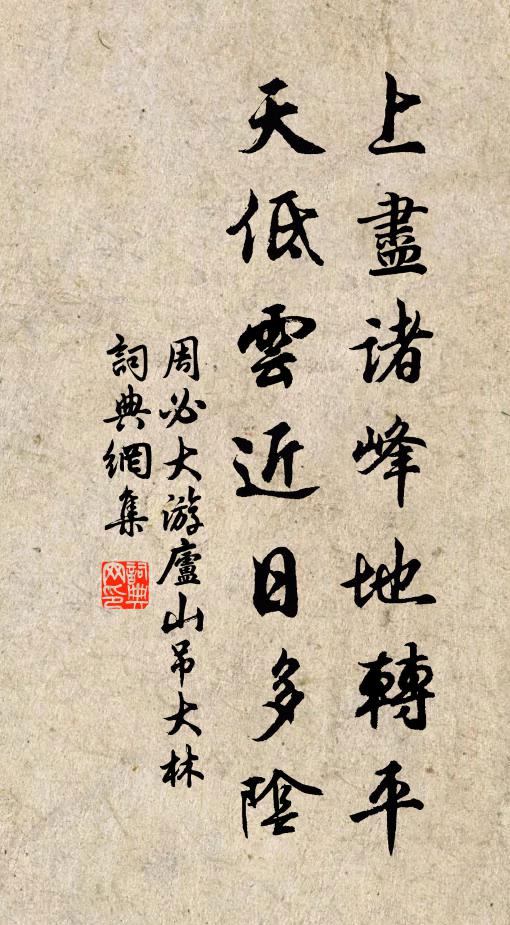 上盡諸峰地轉平
天低雲近日多陰
周必大游廬山吊大林
詞典網集
詞典网印